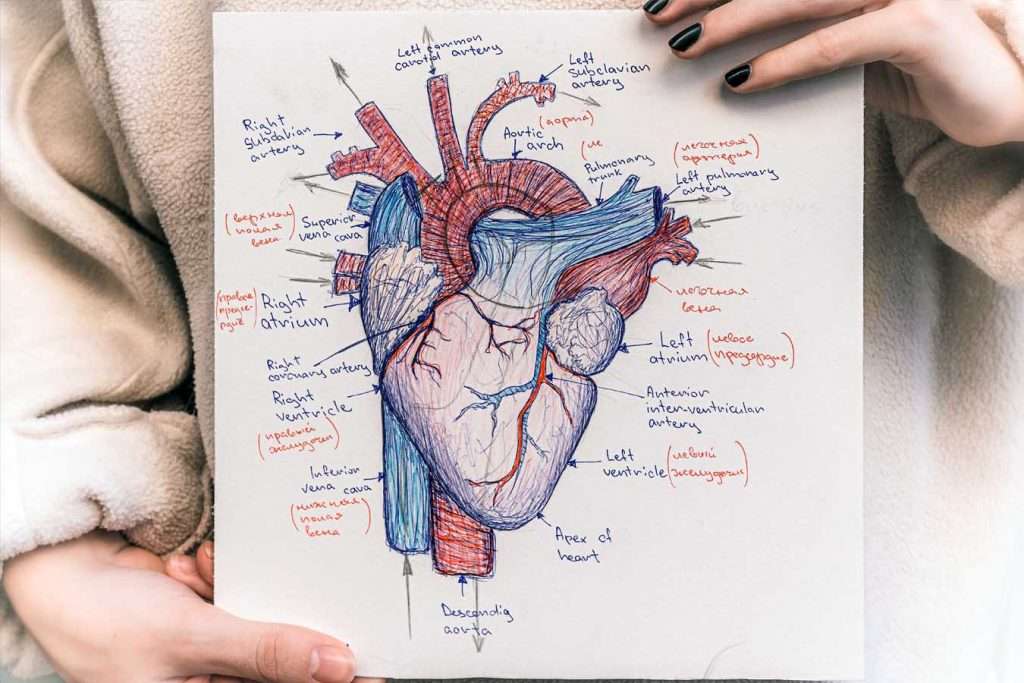 Left common
carotid artery
Left
subclavian
artery
Right
subclavian
artery
(аорта)
Aortic
arch
(ле
Pulmonary
trunk
(легочная
артерия)
Left pulmonary
artery
(верхняя
полая
вена)
Superior
vena cava
(правое
предсер-
дие)
Right
atrium
легочная
вена
Left
atrium
(левое
предсердие)
Right
coronary artery
Right
ventricle
(правый
желудочек)
Anterior
inter-ventricular
artery
Left
ventricle
(левый
желудочек)
Inferior
vena cava
(нижняя
полая
вена)
Apex of
heart
Descendig
aorta